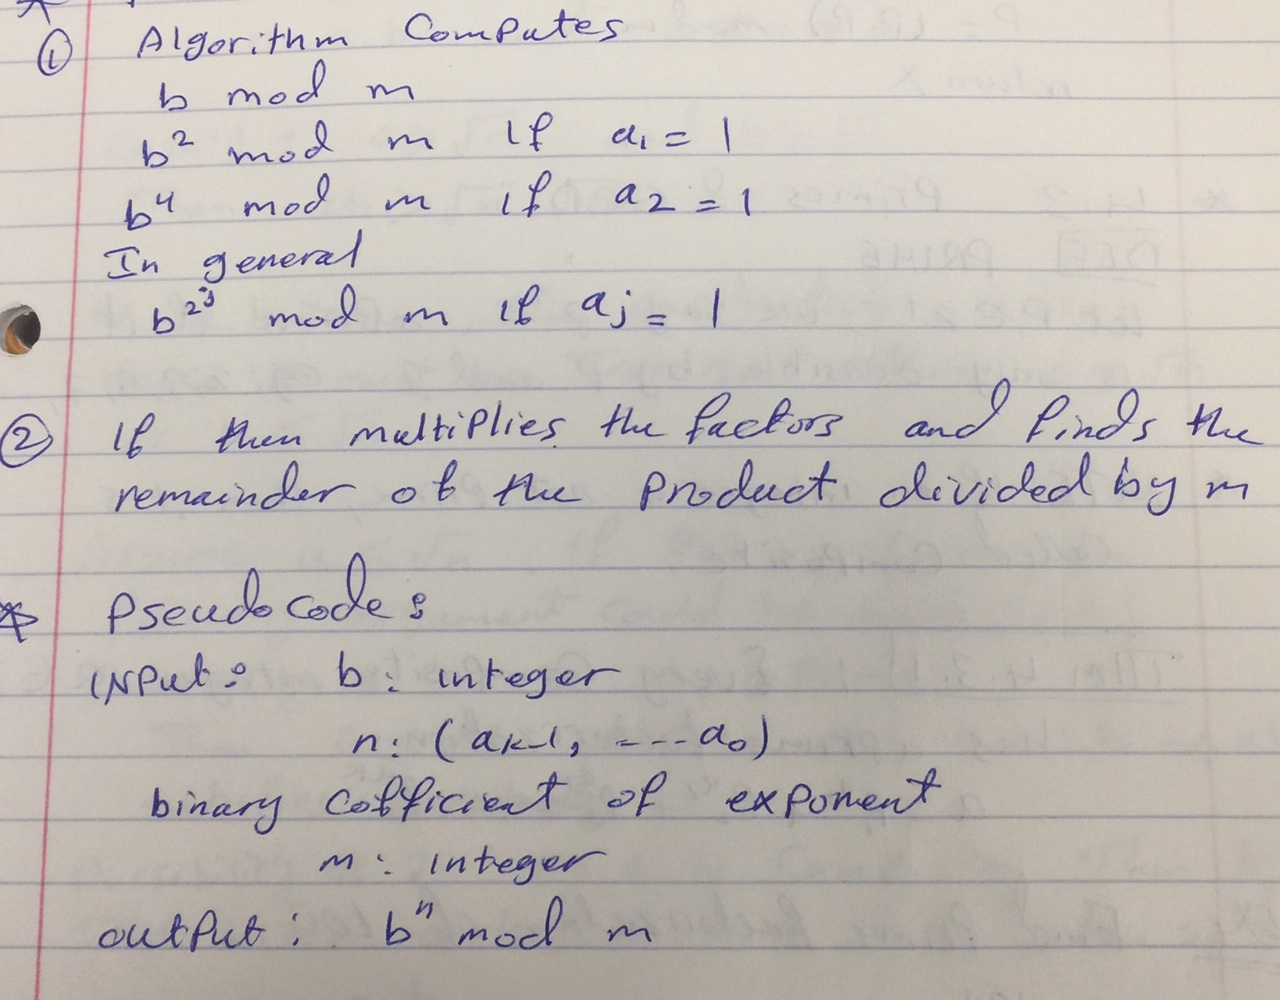 ① Algorithm Computes
b mod m
b² mod m if a₁ = 1
b⁴ mod m if a₂ = 1
In general
b^2^j mod m if aⱼ = 1
② If then multiplies the factors and finds the
remainder of the product divided by m
* Pseudocode:
INPut: b: integer
n: (aₖ₋₁, ---a₀)
binary cofficient of exponent
m: integer
outPut: bⁿ mod m